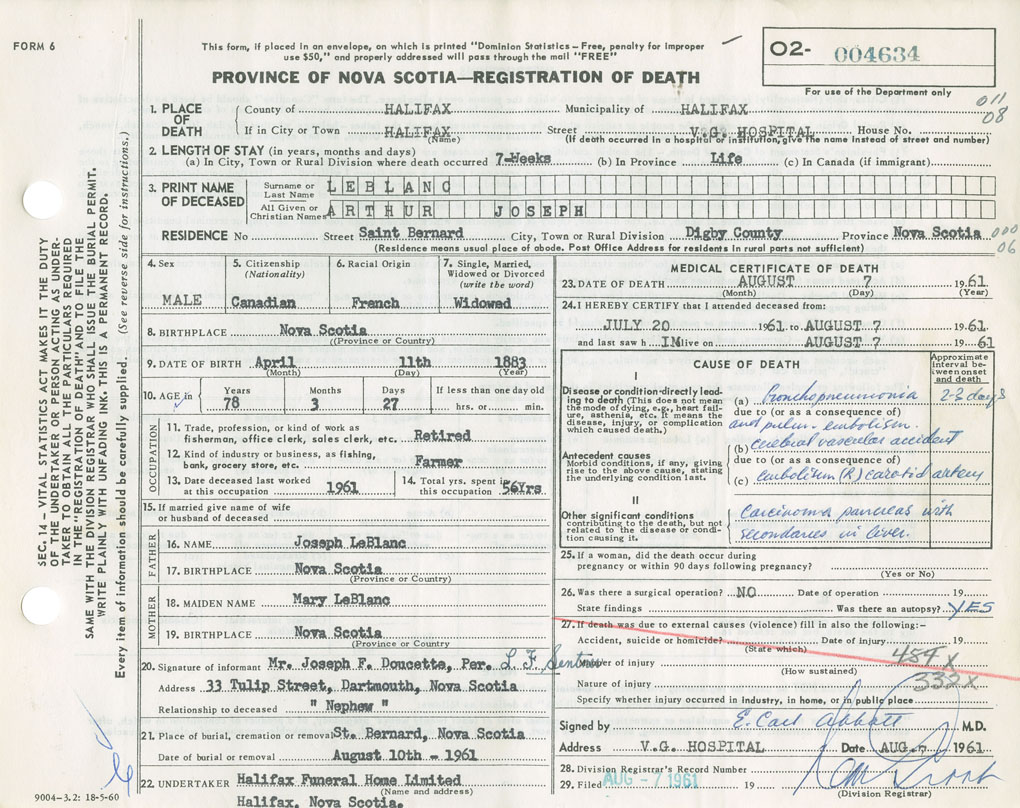 FORM 6
This form, if placed in an envelope, on which is printed "Dominion Statistics – Free, penalty for improper
use $50," and properly addressed will pass through the mail "FREE"
PROVINCE OF NOVA SCOTIA—REGISTRATION OF DEATH
O2- 004634
For use of the Department only
011
08
1. PLACE OF DEATH
County of HALIFAX Municipality of HALIFAX
If in City or Town HALIFAX Street V.G. HOSPITAL House No.
(Name) (If death occurred in a hospital or institution, give the name instead of street and number)
2. LENGTH OF STAY (in years, months and days)
(a) In City, Town or Rural Division where death occurred 7-Weeks (b) In Province Life (c) In Canada (if immigrant)
3. PRINT NAME OF DECEASED
Surname or Last Name LEBLANC
All Given or Christian Names ARTHUR JOSEPH
RESIDENCE No Street Saint Bernard City, Town or Rural Division Digby County Province Nova Scotia
000
06
(Residence means usual place of abode. Post Office Address for residents in rural parts not sufficient)
4. Sex
MALE
5. Citizenship
(Nationality)
Canadian
6. Racial Origin
French
7. Single, Married,
Widowed or Divorced
(write the word)
Widowed
8. BIRTHPLACE Nova Scotia
(Province or Country)
9. DATE OF BIRTH April 11th 1883
(Month) (Day) (Year)
10. AGE in
Years Months Days If less than one day old
78 3 27 hrs. or min.
OCCUPATION
11. Trade, profession, or kind of work as
fisherman, office clerk, sales clerk, etc. Retired
12. Kind of industry or business, as fishing,
bank, grocery store, etc. Farmer
13. Date deceased last worked
at this occupation 1961
14. Total yrs. spent in
this occupation 56Yrs
15. If married give name of wife
or husband of deceased
FATHER
16. NAME Joseph LeBlanc
17. BIRTHPLACE Nova Scotia
(Province or Country)
MOTHER
18. MAIDEN NAME Mary LeBlanc
19. BIRTHPLACE Nova Scotia
(Province or Country
20. Signature of informant Mr. Joseph F. Doucette, Per. L F
Address 33 Tulip Street, Dartmouth, Nova Scotia
Relationship to deceased " Nephew "
21. Place of burial, cremation or removal St. Bernard, Nova Scotia
Date of burial or removal August 10th - 1961
22. UNDERTAKER Halifax Funeral Home Limited
(Name and address)
Halifax, Nova Scotia.
MEDICAL CERTIFICATE OF DEATH
23. DATE OF DEATH AUGUST 7 1961
(Month) (Day) (Year)
24. I HEREBY CERTIFY that I attended deceased from:
JULY 20 1961 to AUGUST 7 1961
and last saw h IM live on AUGUST 7 1961
CAUSE OF DEATH
Approximate
interval be-
tween onset
and death
I
Disease or condition directly lead-
ing to death (This does not mean
the mode of dying, e.g., heart fail-
ure, asthenia, etc. It means the
disease, injury, or complication
which caused death.)
(a) Bronchopneumonia 2-3 days
due to (or as a consequence of)
and pulm. embolism.
Antecedent causes
Morbid conditions, if any, giving
rise to the above cause, stating
the underlying condition last.
(b) cerebral vascular accident
due to (or as a consequence of)
(c) embolism (R) carotid artery
II
Other significant conditions
contributing to the death, but not
related to the disease or condi-
tion causing it.
Carcinoma pancreas with
secondaries in liver.
25. If a woman, did the death occur during
pregnancy or within 90 days following pregnancy?
(Yes or No)
26. Was there a surgical operation? NO Date of operation 19
State findings Was there an autopsy? YES
27. If death was due to external causes (violence) fill in also the following:-
Accident, suicide or homicide? Date of injury 19
(State which)
Manner of injury 484 x
(How sustained)
332x
Nature of injury
Specify whether injury occurred in Industry, in home, or in public place
Signed by E. Carl Abbott M.D.
Address V.G. HOSPITAL Date AUG. 7 1961
28. Division Registrar's Record Number
29. Filed AUG - 7 1961 19
(Division Registrar)
SEC. 14 – VITAL STATISTICS ACT MAKES IT THE DUTY
OF THE UNDERTAKER OR PERSON ACTING AS UNDER-
TAKER TO OBTAIN ALL THE PARTICULARS REQUIRED
IN THE "REGISTRATION OF DEATH" AND TO FILE THE
SAME WITH THE DIVISION REGISTRAR WHO SHALL ISSUE THE BURIAL PERMIT.
WRITE PLAINLY WITH UNFADING INK. THIS IS A PERMANENT RECORD.
Every item of information should be carefully supplied. (See reverse side for instructions.)
9004-3.2: 18-5-60